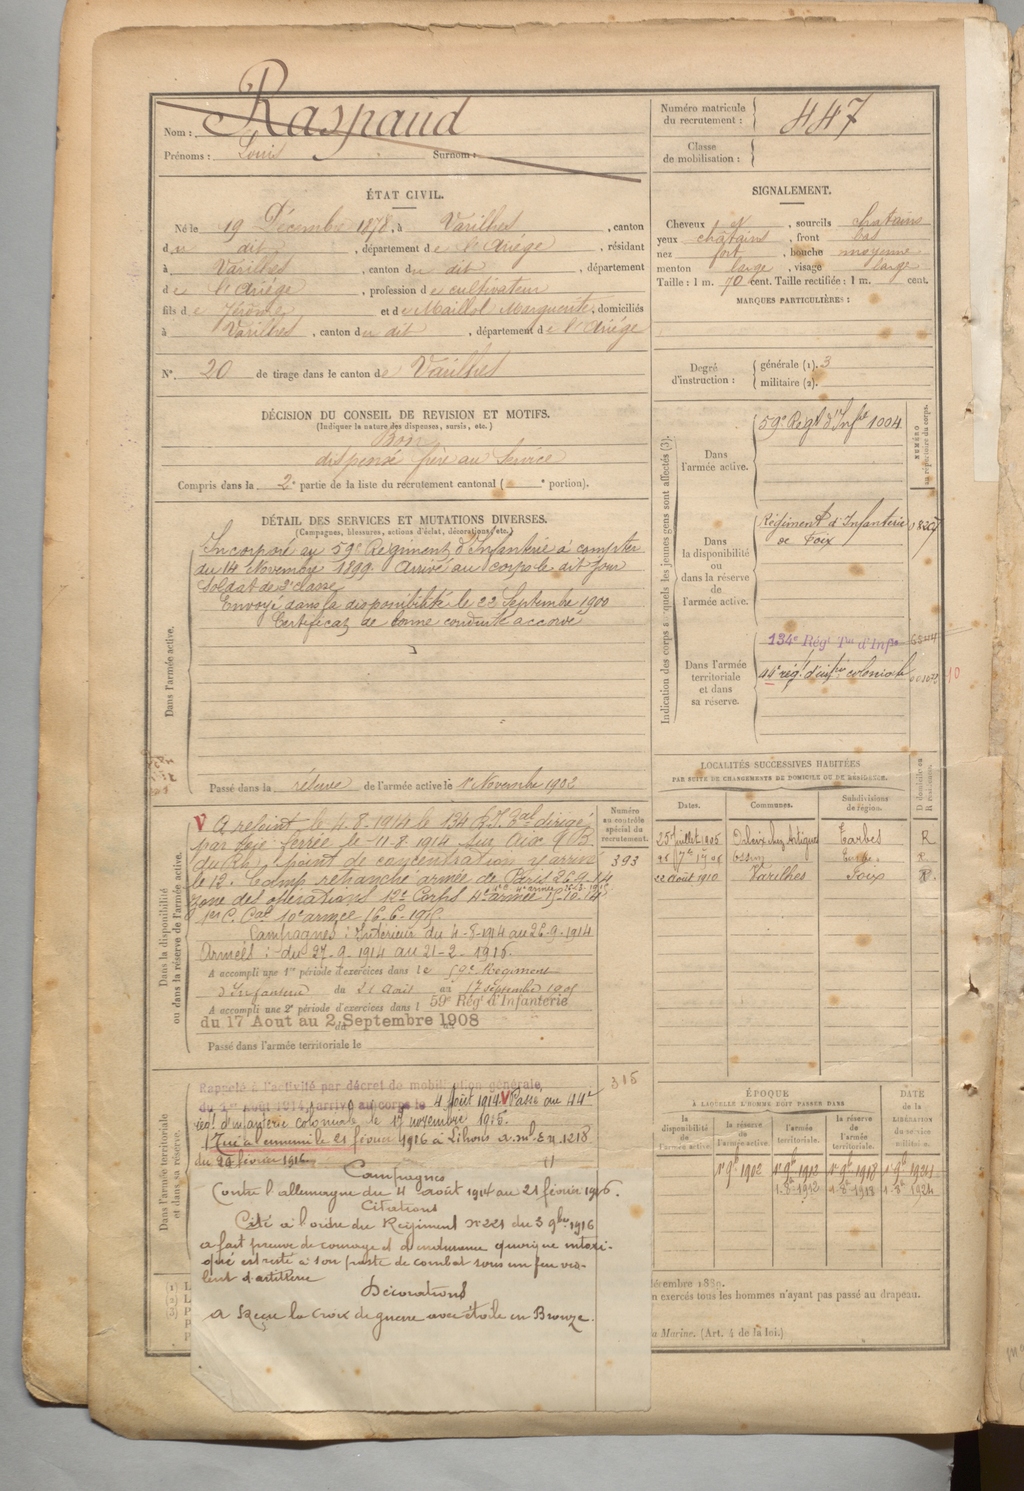 Nom : Raspaud
Prénoms : Louis Surnom :
Numéro matricule du recrutement : 447
Classe de mobilisation :
ÉTAT CIVIL.
Né le 19 Décembre 1878, à Varilhes, canton
du dit, département de l'Ariège, résidant
à Varilhes, canton du dit, département
de l'Ariège, profession de cultivateur
fils de Jérôme et de Maillol Marguerite, domiciliés
à Varilhes, canton du dit, département de l'Ariège
N° 20 de tirage dans le canton de Varilhes
SIGNALEMENT.
Cheveux, sourcils chatains
yeux châtains, front bas
nez fort, bouche moyenne
menton large, visage large
Taille : 1 m. 70 cent. Taille rectifiée : 1 m. cent.
MARQUES PARTICULIÈRES :
Degré d'instruction : générale (1). 3
militaire (2).
DÉCISION DU CONSEIL DE REVISION ET MOTIFS.
(Indiquer la nature des dispenses, sursis, etc.)
Bon
dispensé frère au service
Compris dans la 2e partie de la liste du recrutement cantonal ( e portion).
DÉTAIL DES SERVICES ET MUTATIONS DIVERSES.
(Campagnes, blessures, actions d'éclat, décorations, etc.)
Dans l'armée active.
Incorporé au 59e Régiment d'Infanterie à compter
du 14 Novembre 1899. Arrivé au corps le dit jour
Soldat de 2e classe
Envoyé dans la disponibilité le 22 Septembre 1900
Certificat de bonne conduite accordé
Passé dans la réserve de l'armée active le 1er Novembre 1902
Indication des corps auxquels les jeunes gens sont affectés (3).
NUMÉRO au répertoire du corps.
Dans l'armée active.
59e Régt d'Infie 1004
Dans la disponibilité ou dans la réserve de l'armée active.
Régiment d'Infanterie
de Foix
Dans l'armée territoriale et dans sa réserve.
134e Régt Tal d'Infie
44e rég. d'infie coloniale
10
LOCALITÉS SUCCESSIVES HABITÉES
PAR SUITE DE CHANGEMENTS DE DOMICILE OU DE RÉSIDENCE.
Dates. Communes. Subdivisions de région. D domicile ou R résidence.
25 Juillet 1905 Tarbes R
22 août 1910 Varilhes Foix
Dans la disponibilité ou dans la réserve de l'armée active.
Numéro au contrôle spécial du recrutement.
393
V A rejoint le 4.8.1914 le 134 R.I. Tal dirigé
par voie ferrée le 11.8.1914 sur Aix
point de concentration y arrive
le 12. Camp retranché armée de Paris 26.9.14
zone des opérations 12e Corps 4e armée
1er C. Cal 10e armée 16.6.1915
Campagnes : Intérieur du 4-8-1914 au 26-9-1914
Armées : du 27-9-1914 au 21-2-1916
A accompli une 1re période d'exercices dans le 59e Régiment
d'Infanterie du 21 Août au 17 septembre 1905
A accompli une 2e période d'exercices dans l 59e Régt d'Infanterie
du 17 Aout au 2 Septembre 1908
Passé dans l'armée territoriale le
Dans l'armée territoriale et dans sa réserve.
Rappelé à l'activité par décret de mobilisation générale,
du 1er Août 1914, arrivé au corps le 4 Août 1914 V Passé au 44e
régt d'infanterie coloniale le 17 novembre 1915.
Tué à l'ennemi le 21 février 1916 à Lihons a. ml. En. 1218
du 29 février 1916
315
Campagnes
Contre l'allemagne du 4 août 1914 au 21 février 1916.
Citations
Cité à l'ordre du Régiment n° 221 du 3 9bre 1916
a fait preuve de courage et d'endurance quoique intoxi-
qué est resté à son poste de combat sous un feu vio-
lent d'artillerie
Décorations
A Reçu la Croix de guerre avec étoile en Bronze.
ÉPOQUE
À LAQUELLE L'HOMME DOIT PASSER DANS
la disponibilité de l'armée active.
la réserve de l'armée active.
l'armée territoriale.
la réserve de l'armée territoriale.
DATE de la LIBÉRATION du service militaire.
1er 9bre 1902 1er 9bre 1912 1er 9bre 1918 1er 9bre 1924
1.8bre 1912 1.8bre 1918 1.8bre 1924
décembre 1889.
n exercés tous les hommes n'ayant pas passé au drapeau.
Marine. (Art. 4 de la loi.)